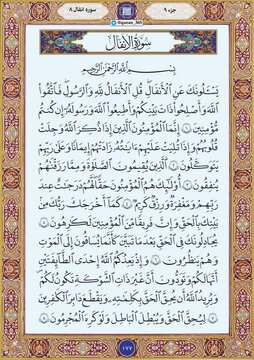 جزء ۹
@quran_365
سوره انفال ۸
سورة الأنفال
بسم الله الرحمن الرحيم
يَسْـَٔلُونَكَ عَنِ الْأَنْفَالِ قُلِ الْأَنْفَالُ لِلَّهِ وَالرَّسُولِ فَاتَّقُوا
اللَّهَ وَأَصْلِحُوا ذَاتَ بَيْنِكُمْ وَأَطِيعُوا اللَّهَ وَرَسُولَهُ إِنْ كُنْتُمْ
مُؤْمِنِينَ ۱ إِنَّمَا الْمُؤْمِنُونَ الَّذِينَ إِذَا ذُكِرَ اللَّهُ وَجِلَتْ
قُلُوبُهُمْ وَإِذَا تُلِيَتْ عَلَيْهِمْ ءَايَاتُهُ زَادَتْهُمْ إِيمَانًا وَعَلَىٰ رَبِّهِمْ
يَتَوَكَّلُونَ ۲ الَّذِينَ يُقِيمُونَ الصَّلَاةَ وَمِمَّا رَزَقْنَاهُمْ
يُنْفِقُونَ ۳ أُولَٰئِكَ هُمُ الْمُؤْمِنُونَ حَقًّا لَهُمْ دَرَجَاتٌ عِنْدَ
رَبِّهِمْ وَمَغْفِرَةٌ وَرِزْقٌ كَرِيمٌ ۴ كَمَا أَخْرَجَكَ رَبُّكَ مِنْ
بَيْتِكَ بِالْحَقِّ وَإِنَّ فَرِيقًا مِنَ الْمُؤْمِنِينَ لَكَارِهُونَ ۵
يُجَادِلُونَكَ فِي الْحَقِّ بَعْدَمَا تَبَيَّنَ كَأَنَّمَا يُسَاقُونَ إِلَى الْمَوْتِ
وَهُمْ يَنْظُرُونَ ۶ وَإِذْ يَعِدُكُمُ اللَّهُ إِحْدَى الطَّائِفَتَيْنِ
أَنَّهَا لَكُمْ وَتَوَدُّونَ أَنَّ غَيْرَ ذَاتِ الشَّوْكَةِ تَكُونُ لَكُمْ
وَيُرِيدُ اللَّهُ أَنْ يُحِقَّ الْحَقَّ بِكَلِمَاتِهِ وَيَقْطَعَ دَابِرَ الْكَافِرِينَ ۷
لِيُحِقَّ الْحَقَّ وَيُبْطِلَ الْبَاطِلَ وَلَوْ كَرِهَ الْمُجْرِمُونَ ۸
۱۷۷